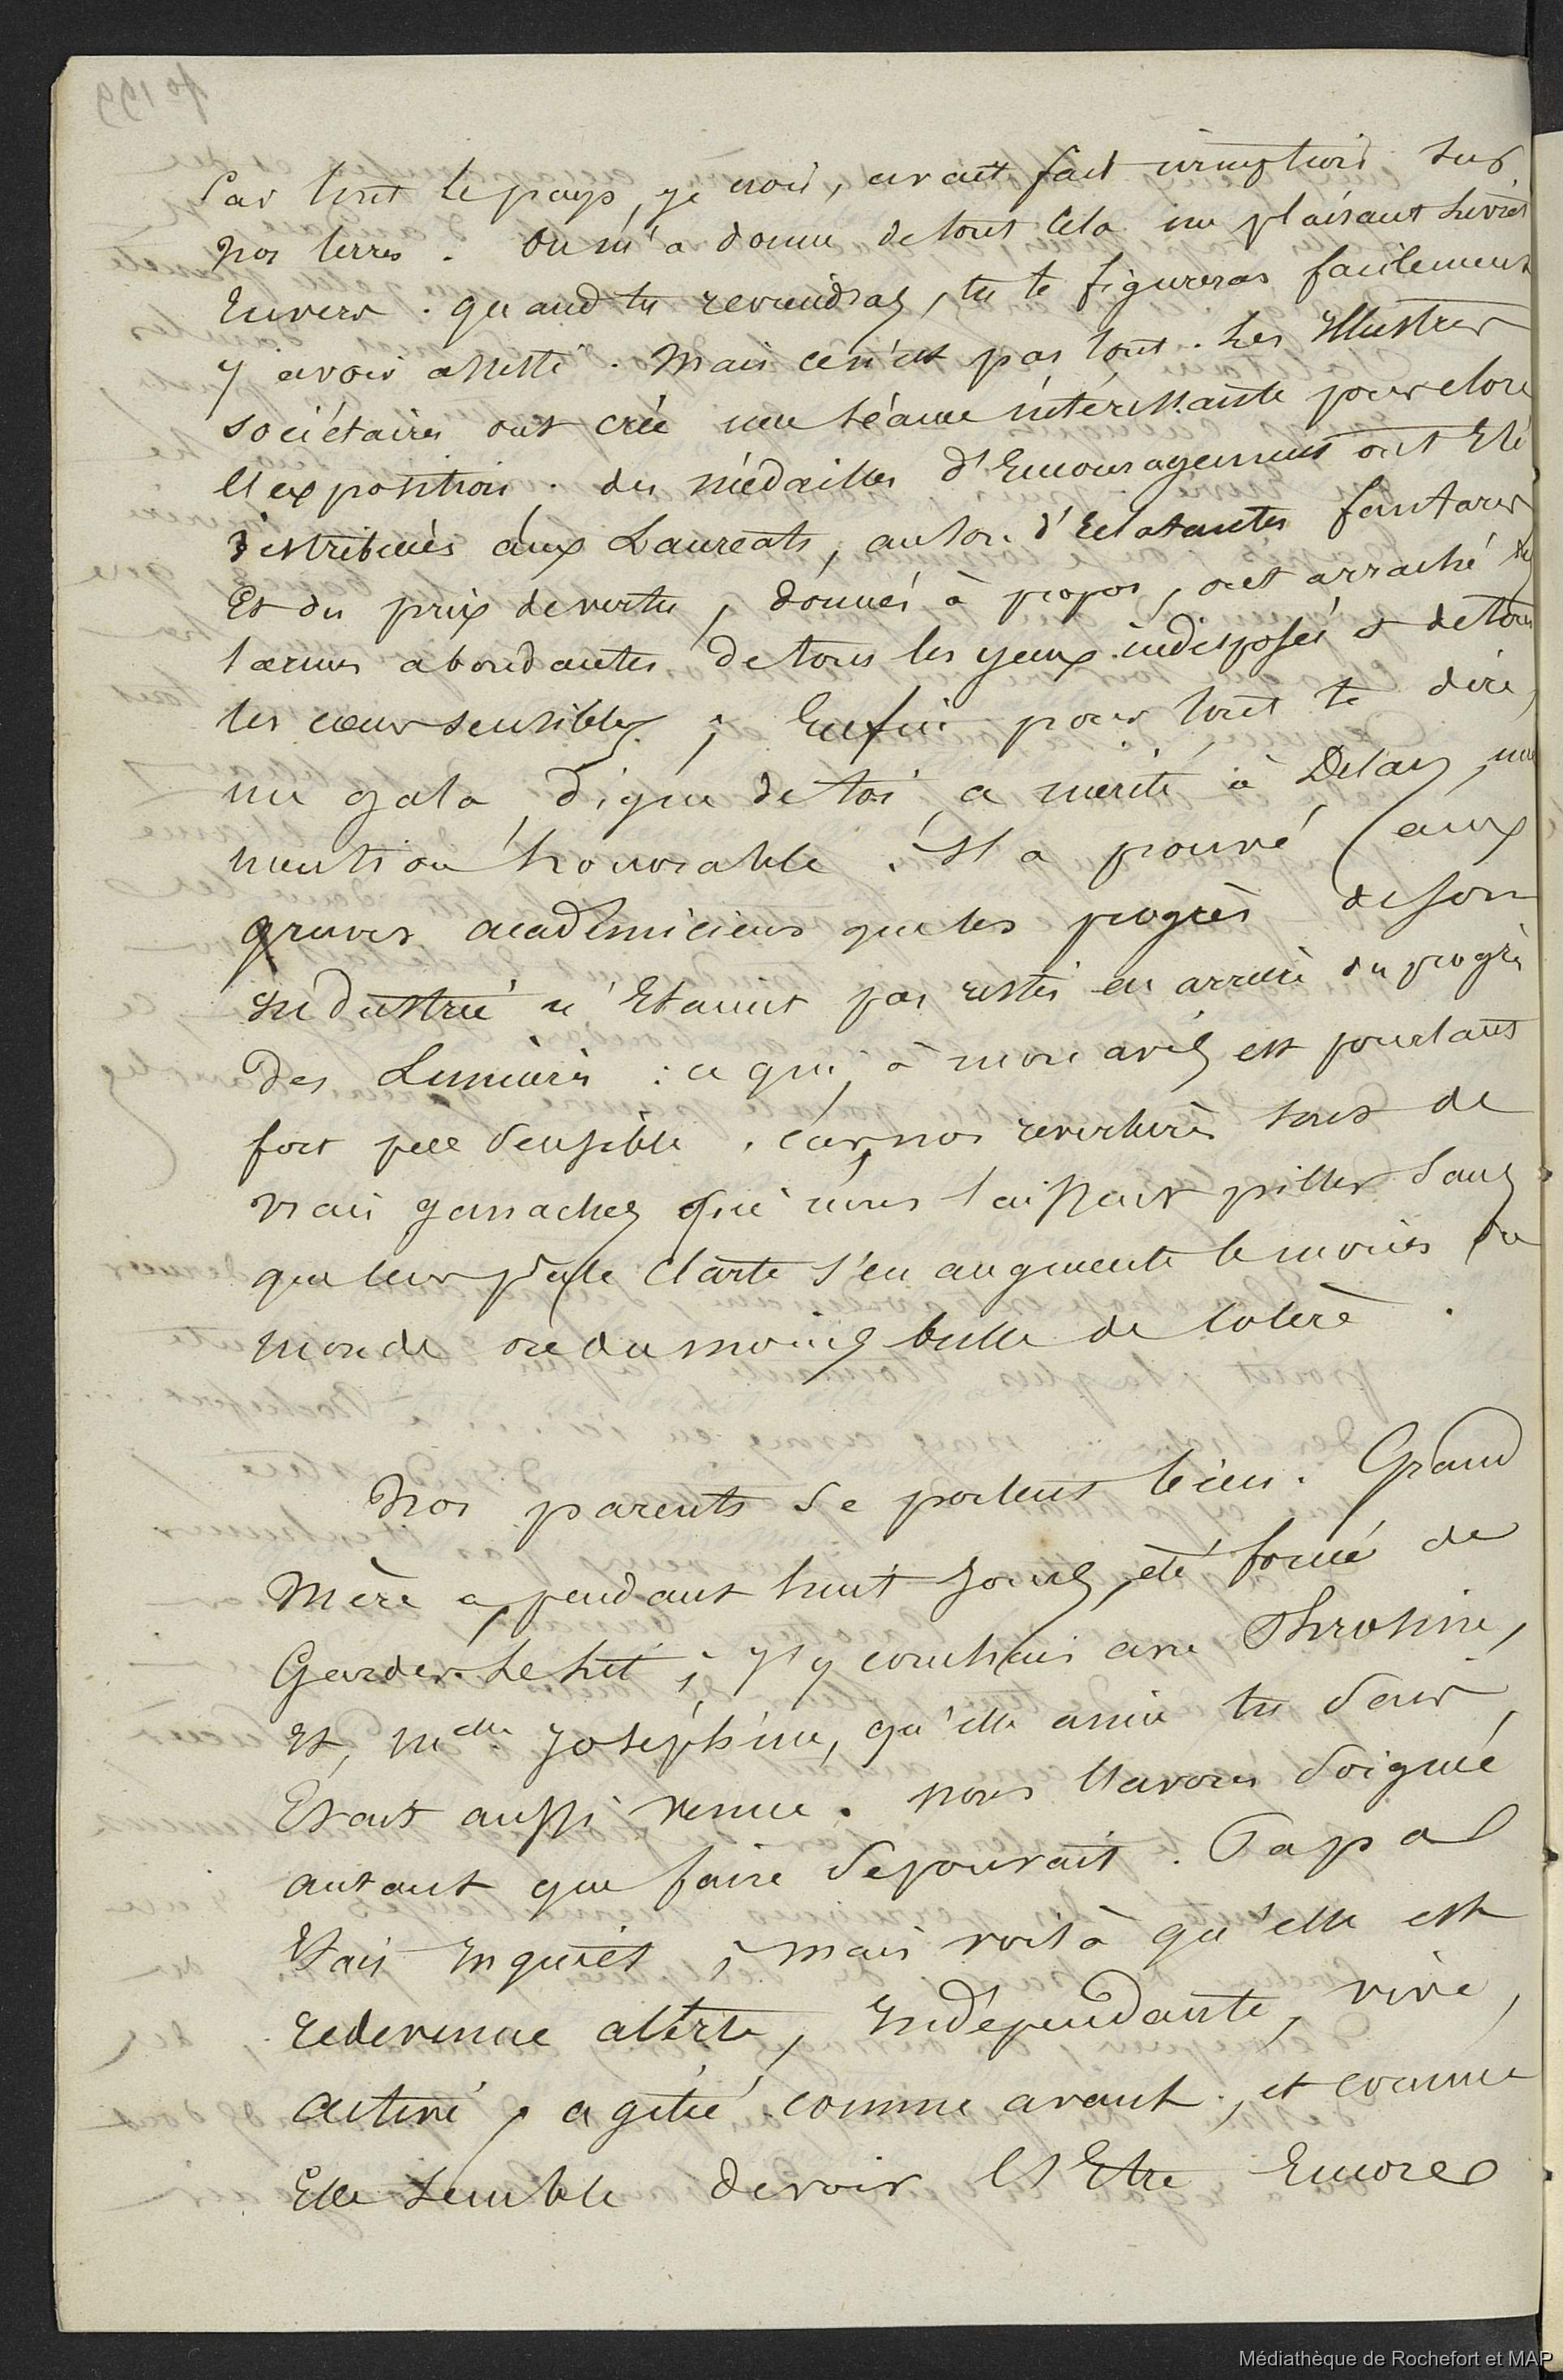 Par tout le pays, je crois, avait fait irruption sur
nos terres. On m'a donné de tout cela un plaisant livret
En vers. quand tu reviendras, tu te figureras facilement
y avoir assisté. Mais ce n'est pas tout. Les Illustres
sociétaires ont créé une séance intéressante pour clore
l'exposition. des médailles d'Encouragement ont Eté
distribuées aux Lauréats, au son d'Eclatantes fanfares
Et du prix de vertu, donnés à propos, ont arraché des
larmes abondantes de tous les yeux indisposés et de tous
les cœurs sensibles ; Enfin pour tout te dire,
un gala, digne de toi, a mérité à Delay, une
mention honorable. Il a prouvé aux
graves académiciens que les progrès de son
Industrie n'Etaient pas restés en arrière du progrès
Des Lumières : ce qui, à mon avis, est pourtant
fort peu sensible. Car nos réverbères sont de
vrais ganaches qui nous laissent piller sans
que leur pâle clarté s'en augmente le moins du
monde
de colère.
Nos parents se portent bien. Grand
Mère a, pendant huit jours, été forcée de
Garder le lit ; j'y couchais avec
Et, Melle Joséphine, qu'elle aime tu sais,
Etant aussi venue. nous l'avons soignée
autant que faire se pouvait. Papa
Etait Inquiet ; mais voilà qu'elle est
redevenue alerte, Indépendante, vive,
active, agitée comme avant, et comme
Elle semble devoir l'Etre Encore
Médiathèque de Rochefort et MAP